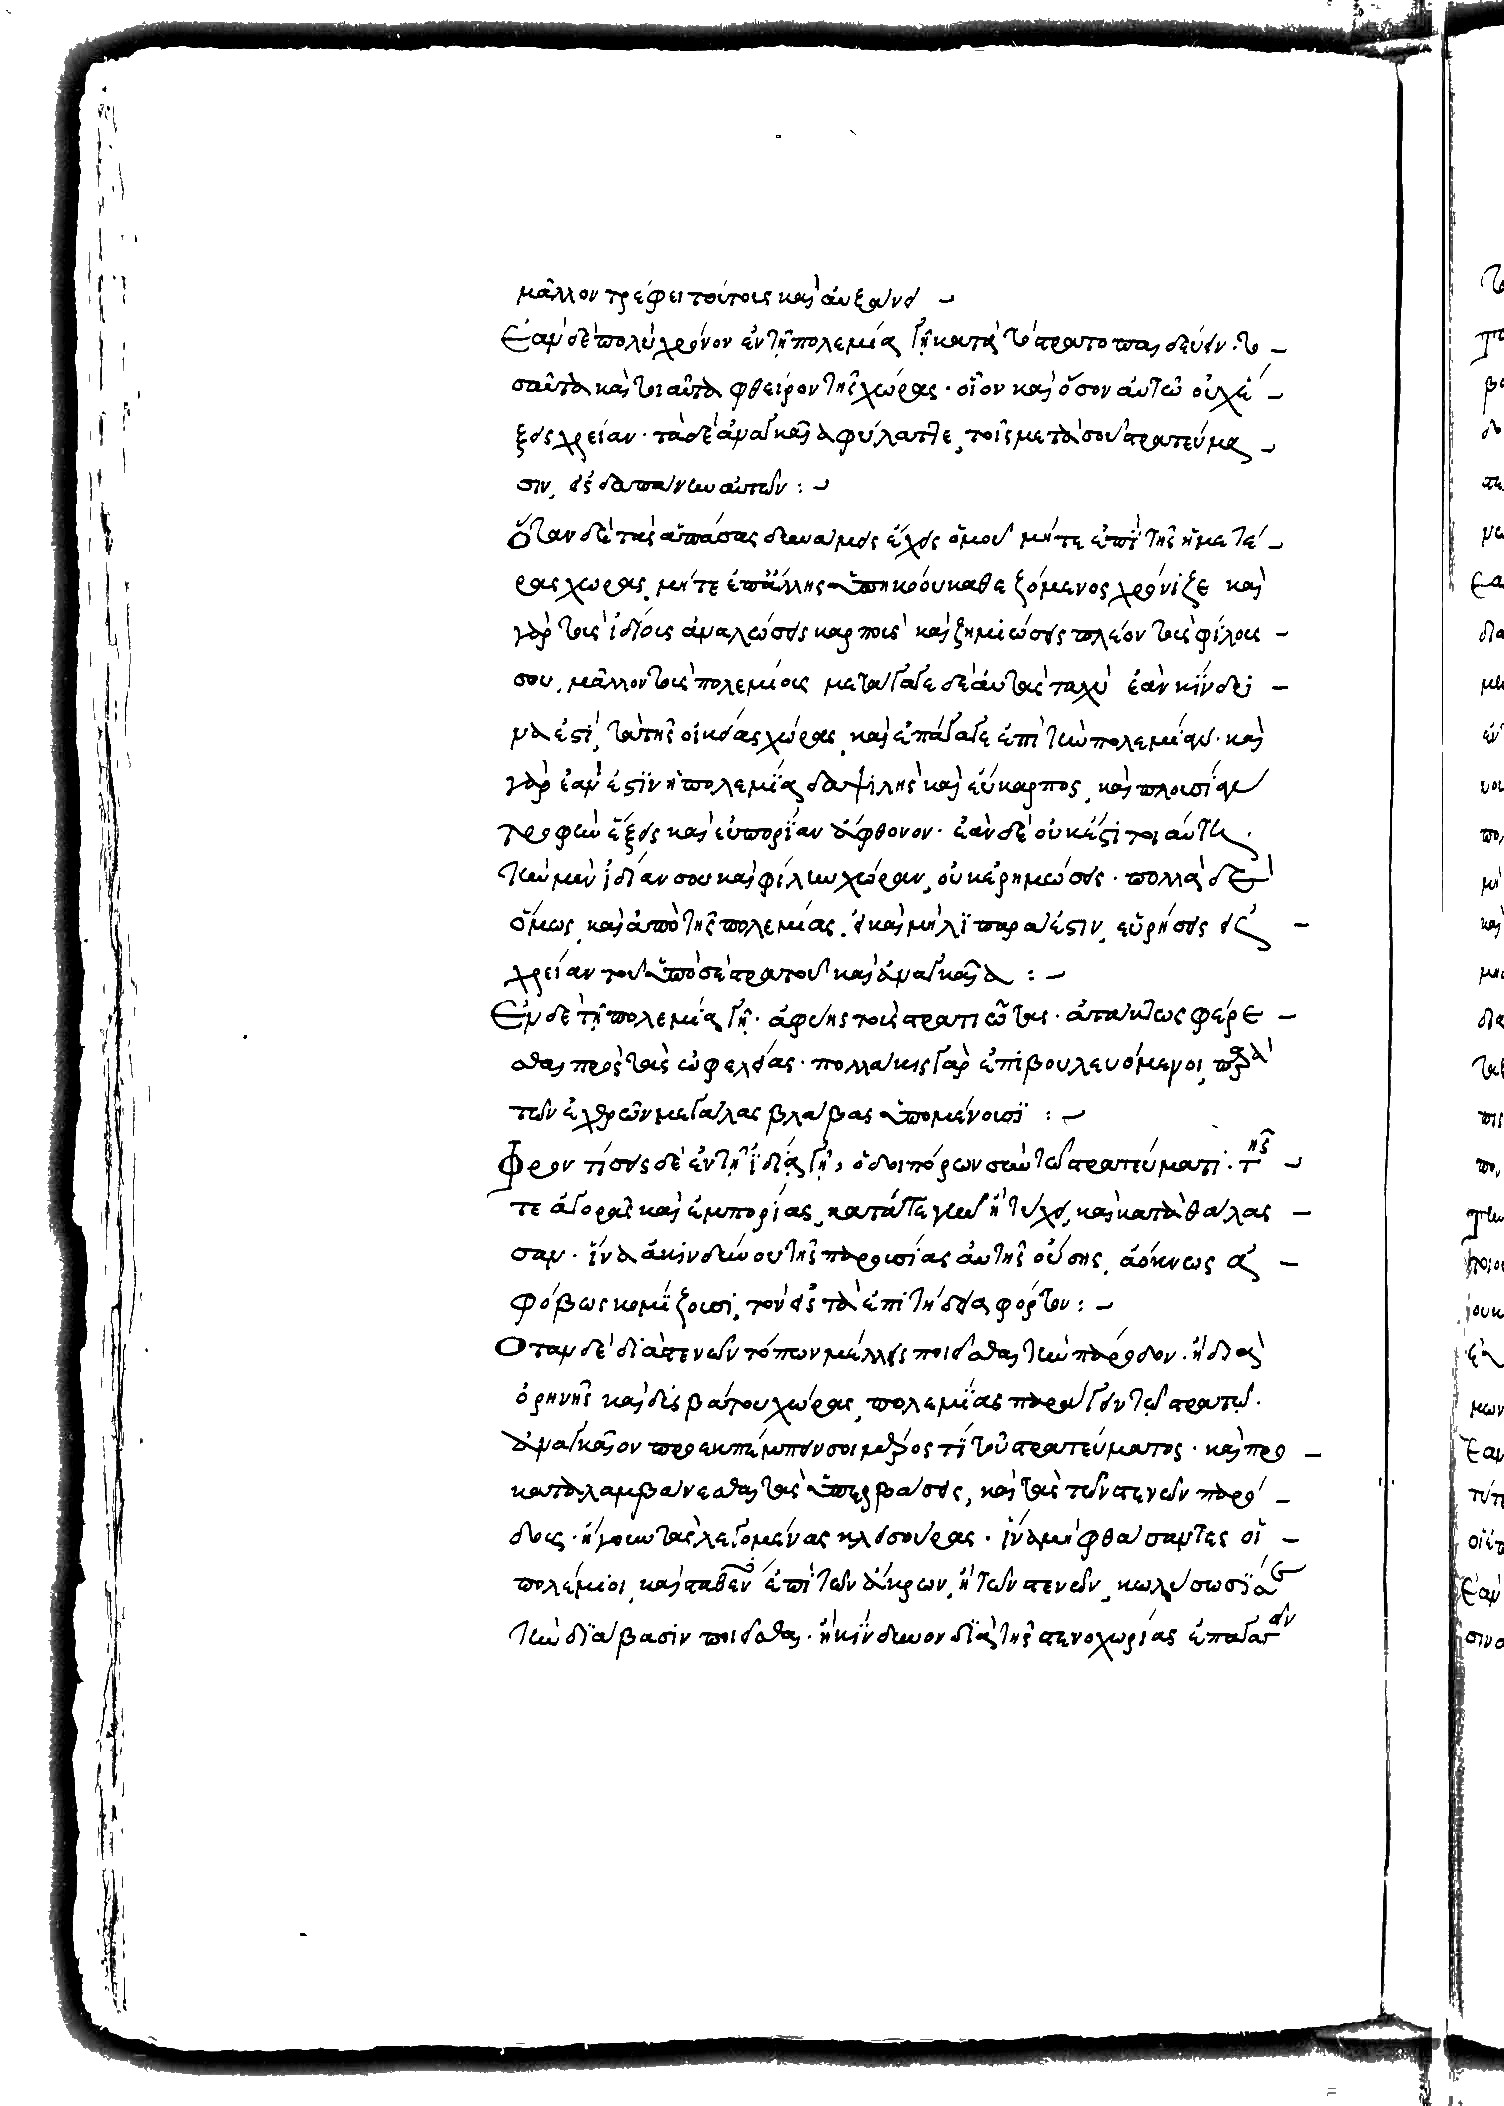 μᾶλλον τρέφει τούτοις καὶ αὐξάνει –
Ἐὰν δὲ πολὺ χρόνον ἐν τῇ πολεμίᾳ γῇ καταστρατοπαιδεύειν· το –
σαῦτα καὶ τοιαῦτα φθεῖρον τῆς χώρας· οἷον καὶ ὅσον αὐτῶ οὐχέ –
ξεις χρείαν· τὰ δὲ ἀναγκαῖα φύλαττε, τοῖς μετὰ σοῦ στρατεύμα –
σιν, εἰς δαπάνην αὐτῶν : –
Ὅταν δὲ τὰς ἁπάσας δυνάμεις ἔχεις ὁμοῦ μήτε ἐπὶ τῆς ἡμετέ –
ρας χώρας, μήτε ἐπ' ἄλλης ὑπηκόου καθεζόμενος χρόνιζε καὶ
γὰρ τοῖς ἰδίοις ἀναλώσεις καρποῖς καὶ ζημιώσεις πλέον τοῖς φίλοις –
σου, μᾶλλον τοῖς πολεμίοις μετάγαγε δὲ αὐτὰς ταχὺ ἐὰν κίνδει –
να ἐστὶ, τὰ τῆς οἰκείας χώρας, καὶ ἐπάγαγε ἐπὶ τὴν πολεμίαν· καὶ
γὰρ ἐὰν ἐστὶν ἡ πολεμία δαψιλὴς καὶ εὔκαρπος, καὶ πλουσίαν
τροφὴν ἕξεις καὶ εὐπορίαν ἄφθονον· ἐὰν δὲ οὐκ ἔστι τοιαύτη,
τὴν μὲν ἰδίαν σου καὶ φίλην χώραν, οὐκ ἐρημώσεις· πολλὰ δὲ
ὅμως, καὶ ἀπὸ τῆς πολεμίας, εἰ καὶ μὴ λιπαρά ἐστιν, εὑρήσεις εἰς –
χρείαν τοῦ ὑπὸ σὲ στρατοῦ καὶ ἀναγκαῖα : –
Ἐν δὲ τῇ πολεμίᾳ γῇ· ἀφίης τοὺς στρατιώτας· ἀτάκτως φέρε –
σθαι πρὸς τὰς ὠφελείας· πολλάκις γὰρ ἐπιβουλευόμενοι, παρὰ
τῶν ἐχθρῶν μεγάλας βλάβας ὑπομένουσι : –
Φροντίσεις δὲ ἐν τῇ ἰδίᾳ γῇ, ὁδοιπόρων σὺν τῶ στρατεύματι· τῆς –
τε ἀγορᾶς καὶ ἐμπορίας, κατά τε γὴν ἢ τύχει, καὶ κατὰ θάλας –
σαν· ἵνα ἀκινδύνου τῆς παρουσίας αὐτῆς οὔσης, ἀόκνως ἀ –
φόβως κομίζουσι, τὸν εἰς τὰ ἐπιτήδεια φόρτον : –
Ὅταν δὲ διὰ στενῶν τόπων μέλλεις ποιεῖσθαι τὴν πάροδον· ἢ διὰ
ὀρηνῆς καὶ δισβάτου χώρας, πολεμίας παραγεῖν τῶ στρατῷ·
ἀναγκαῖον προεκπέμπειν σοι μέρος τί τοῦ στρατεύματος· καὶ προ –
καταλαμβάνεσθαι τὰς ὑπερβάσεις, καὶ τὰς τῶν στενῶν παρό –
δους· ἤγουν τὰς λεγομένας κλεισούρας· ἵνα μὴ φθάσαντες οἱ –
πολέμιοι, καὶ σταθὲν ἐπὶ τῶν ἄκρων, ἢ τῶν στενῶν, κωλύσωσί σε
τὴν διάβασιν ποιεῖσθαι· ἢ κίνδυνον διὰ τῆς στενοχωρίας ἐπάγαγειν